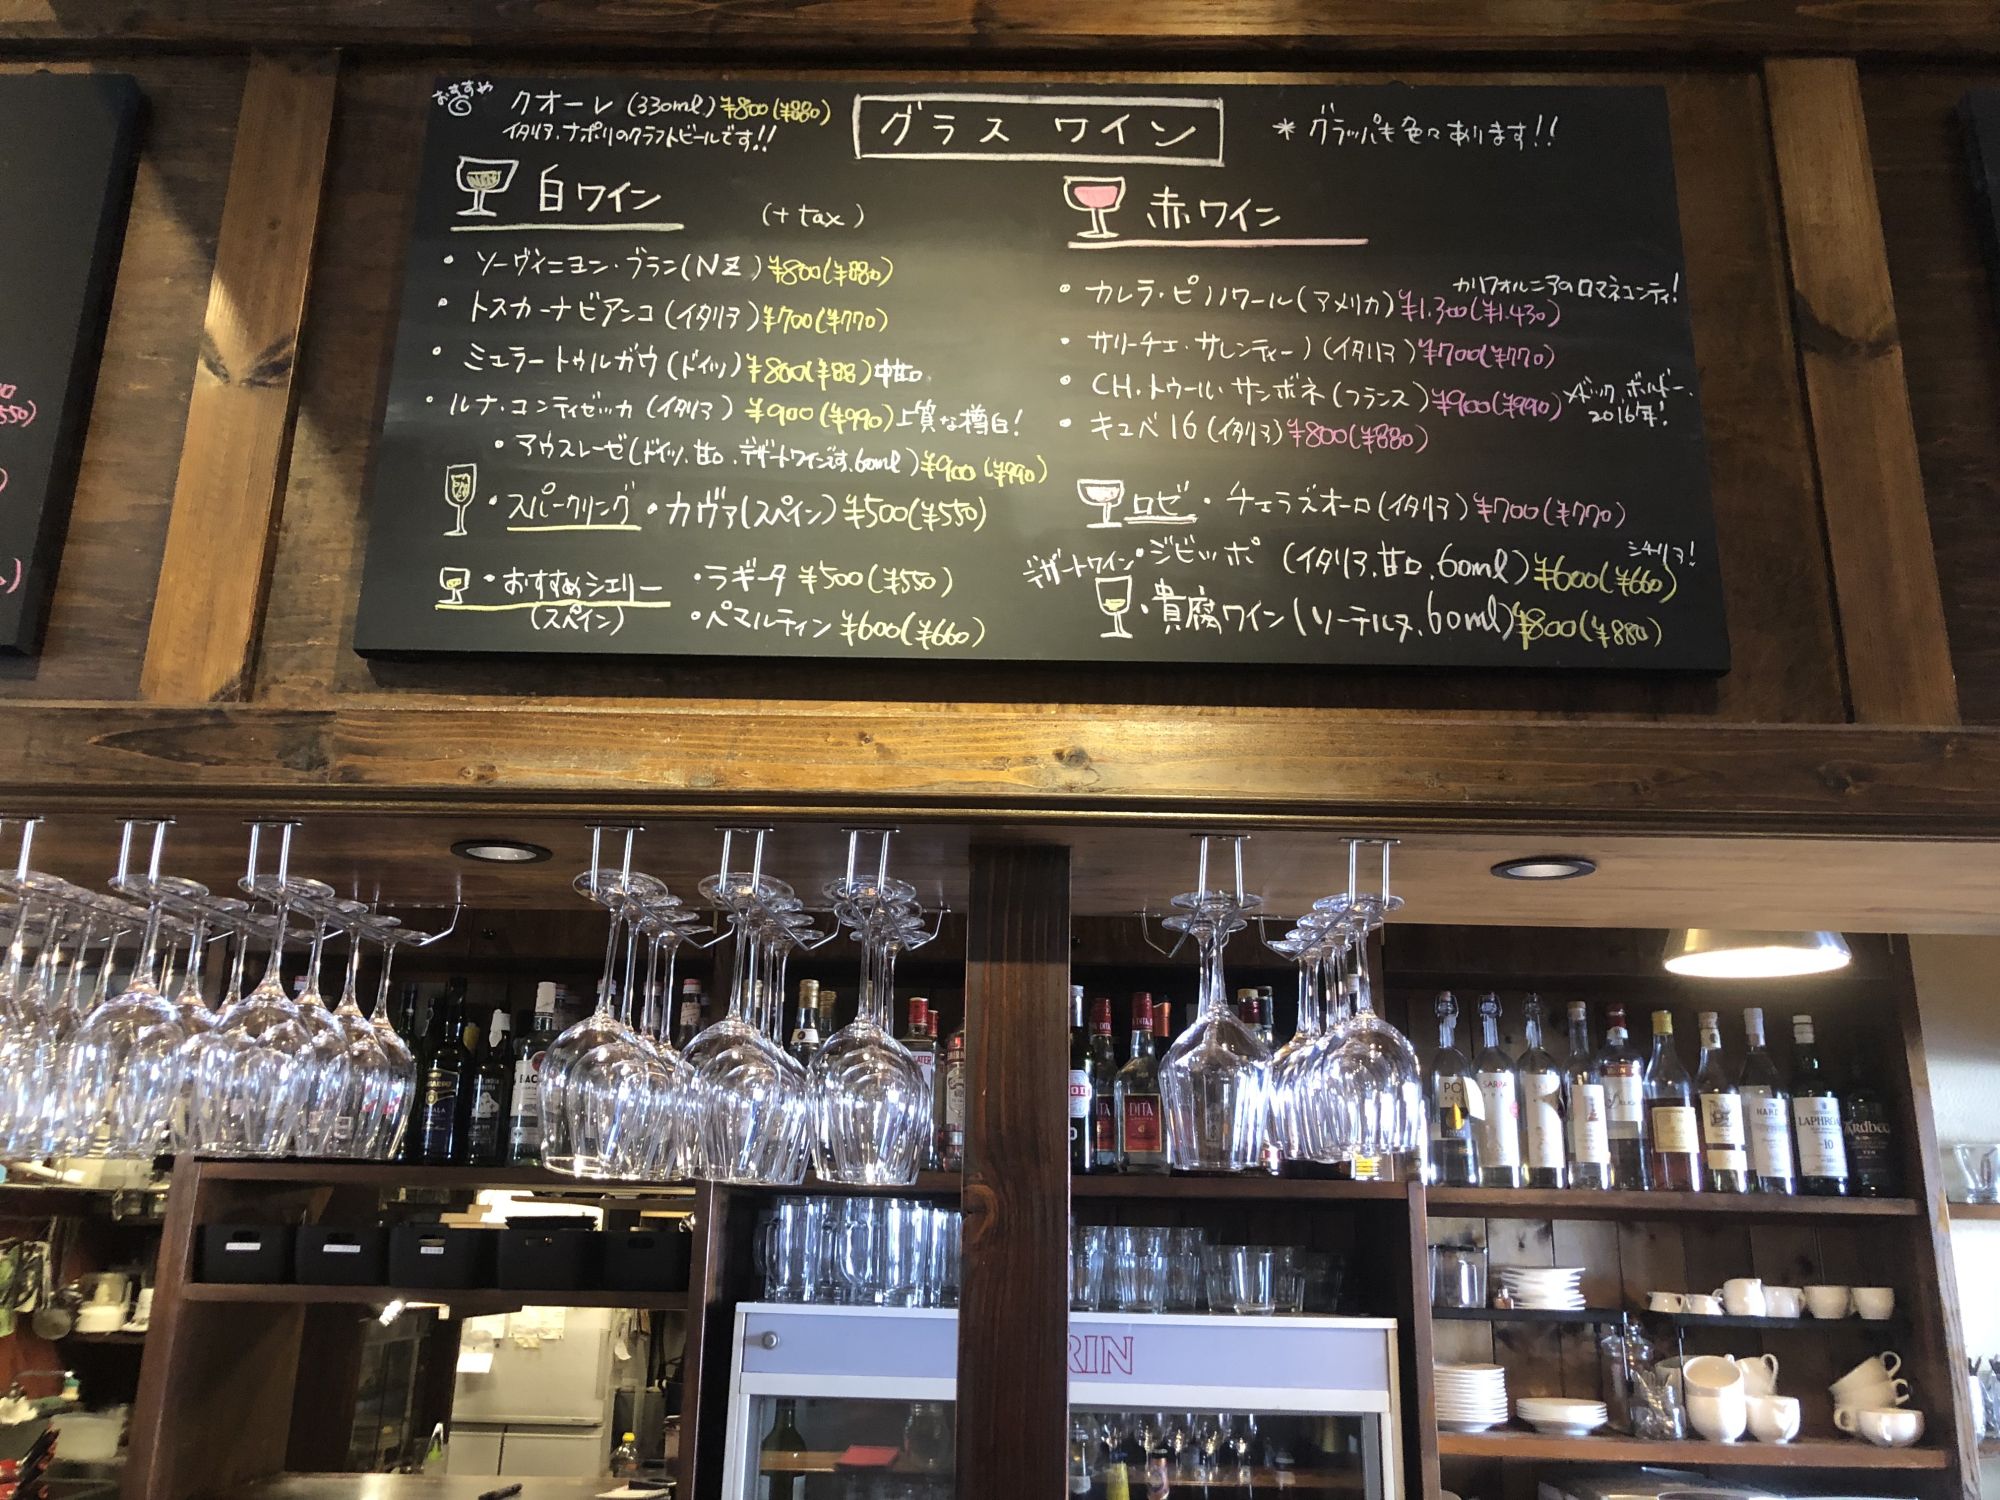 おすすめ
クオーレ (330ml) ¥800(¥880)
イタリア、ナポリのクラフトビールです!!
グラス ワイン
* グラッパも色々あります!!
白ワイン
(+ tax)
・ソーヴィニヨン・ブラン(NZ) ¥800(¥880)
・トスカーナビアンコ(イタリア) ¥700(¥770)
・ミュラートゥルガウ(ドイツ) ¥800(¥88) 中甘口
・ルナ・コンティゼッカ(イタリア) ¥900(¥990) 上質な樽白!
・アウスレーゼ(ドイツ.甘口.デザートワインです.60ml) ¥900(¥990)
・スパークリング ・カヴァ(スペイン) ¥500(¥550)
・おすすめシェリー ・ラギータ ¥500(¥550)
(スペイン) ・ペマルティン ¥600(¥660)
赤ワイン
カリフォルニアのロマネコンティ!
・カレラ・ピノノワール(アメリカ) ¥1.300(¥1.430)
・サリーチェ・サレンティーノ(イタリア) ¥700(¥770)
・CH.トゥール・サンボネ(フランス) ¥900(¥990) メドック、ボルドー、
2016年!
・キュベ16(イタリア) ¥800(¥880)
ロゼ ・チェラズオーロ(イタリア) ¥700(¥770)
シチリア!
デザートワイン ・ジビッボ (イタリア.甘口.60ml) ¥600(¥660)
・貴腐ワイン(ソーテルヌ.60ml) ¥800(¥880)
DITA
SARPA
HARD
LAPHRO
10
ARDBEG
TEN
RIN